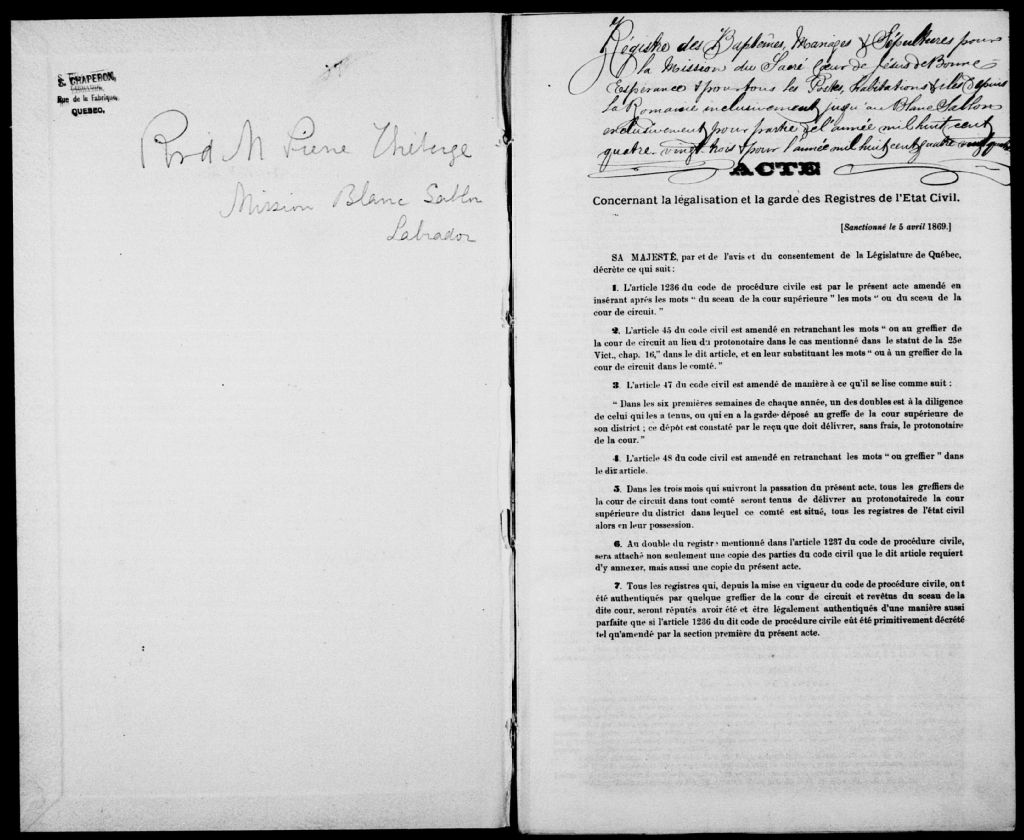 E. CHAPERON,
LABRADOR
Rue de la Fabrique,
QUEBEC.
Rvrd M Pierre Théberge
Mission Blanc Sablon
Labrador
Régistre des Baptêmes, Mariages & Sépultures pour
la Mission du Sacré Cœur de Jésus de Bonne
Espérance & pour tous les Postes, habitations & iles Depuis
La Romaine inclusivement jusqu'au Blanc Sablon
exclusivement pour partie de l'année mil huit cent
quatre-vingt-trois & pour l'année mil huit cent quatre vingt quatre
ACTE
Concernant la légalisation et la garde des Registres de l'Etat Civil.
[Sanctionné le 5 avril 1869.]
SA MAJESTÉ, par et de l'avis et du consentement de la Législature de Québec,
décrète ce qui suit :
1. L'article 1236 du code de procédure civile est par le présent acte amendé en
insérant après les mots “ du sceau de la cour supérieure ” les mots “ ou du sceau de la
cour de circuit. ”
2. L'article 45 du code civil est amendé en retranchant les mots “ ou au greffier de
la cour de circuit au lieu du protonotaire dans le cas mentionné dans le statut de la 25e
Vict., chap. 16,” dans le dit article, et en leur substituant les mots “ ou à un greffier de la
cour de circuit dans le comté. ”
3 L'article 47 du code civil est amendé de manière à ce qu'il se lise comme suit :
“ Dans les six premières semaines de chaque année, un des doubles est à la diligence
de celui qui les a tenus, ou qui en a la garde déposé au greffe de la cour supérieure de
son district ; ce dépôt est constaté par le reçu que doit délivrer, sans frais, le protonotaire
de la cour. ”
4. L'article 48 du code civil est amendé en retranchant les mots “ ou greffier ” dans
le dit article.
5. Dans les trois mois qui suivront la passation du présent acte, tous les greffiers de
la cour de circuit dans tout comté seront tenus de délivrer au protonotairede la cour
supérieure du district dans lequel ce comté est situé, tous les registres de l'état civil
alors en leur possession.
6. Au double du registre mentionné dans l'article 1237 du code de procédure civile,
sera attaché non seulement une copie des parties du code civil que le dit article requiert
d'y annexer, mais aussi une copie du présent acte.
7. Tous les registres qui, depuis la mise en vigueur du code de procédure civile, ont
été authentiqués par quelque greffier de la cour de circuit et revêtus du sceau de la
dite cour, seront réputés avoir été et être légalement authentiqués d'une manière aussi
parfaite que si l'article 1236 du dit code de procédure civile eût été primitivement décrété
tel qu'amendé par la section première du présent acte.